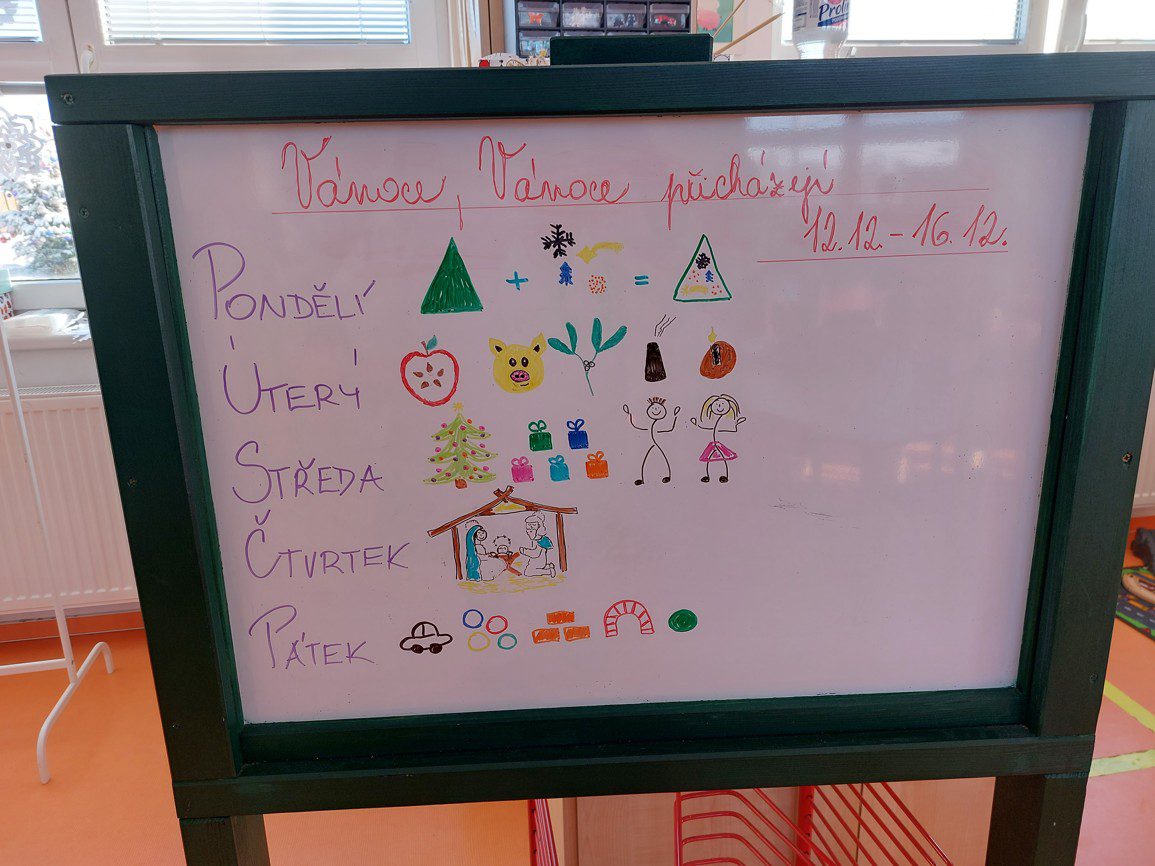 Vánoce, Vánoce přicházejí
12.12. - 16.12.
PONDĚLÍ
+ =
ÚTERÝ
STŘEDA
ČTVRTEK
PÁTEK